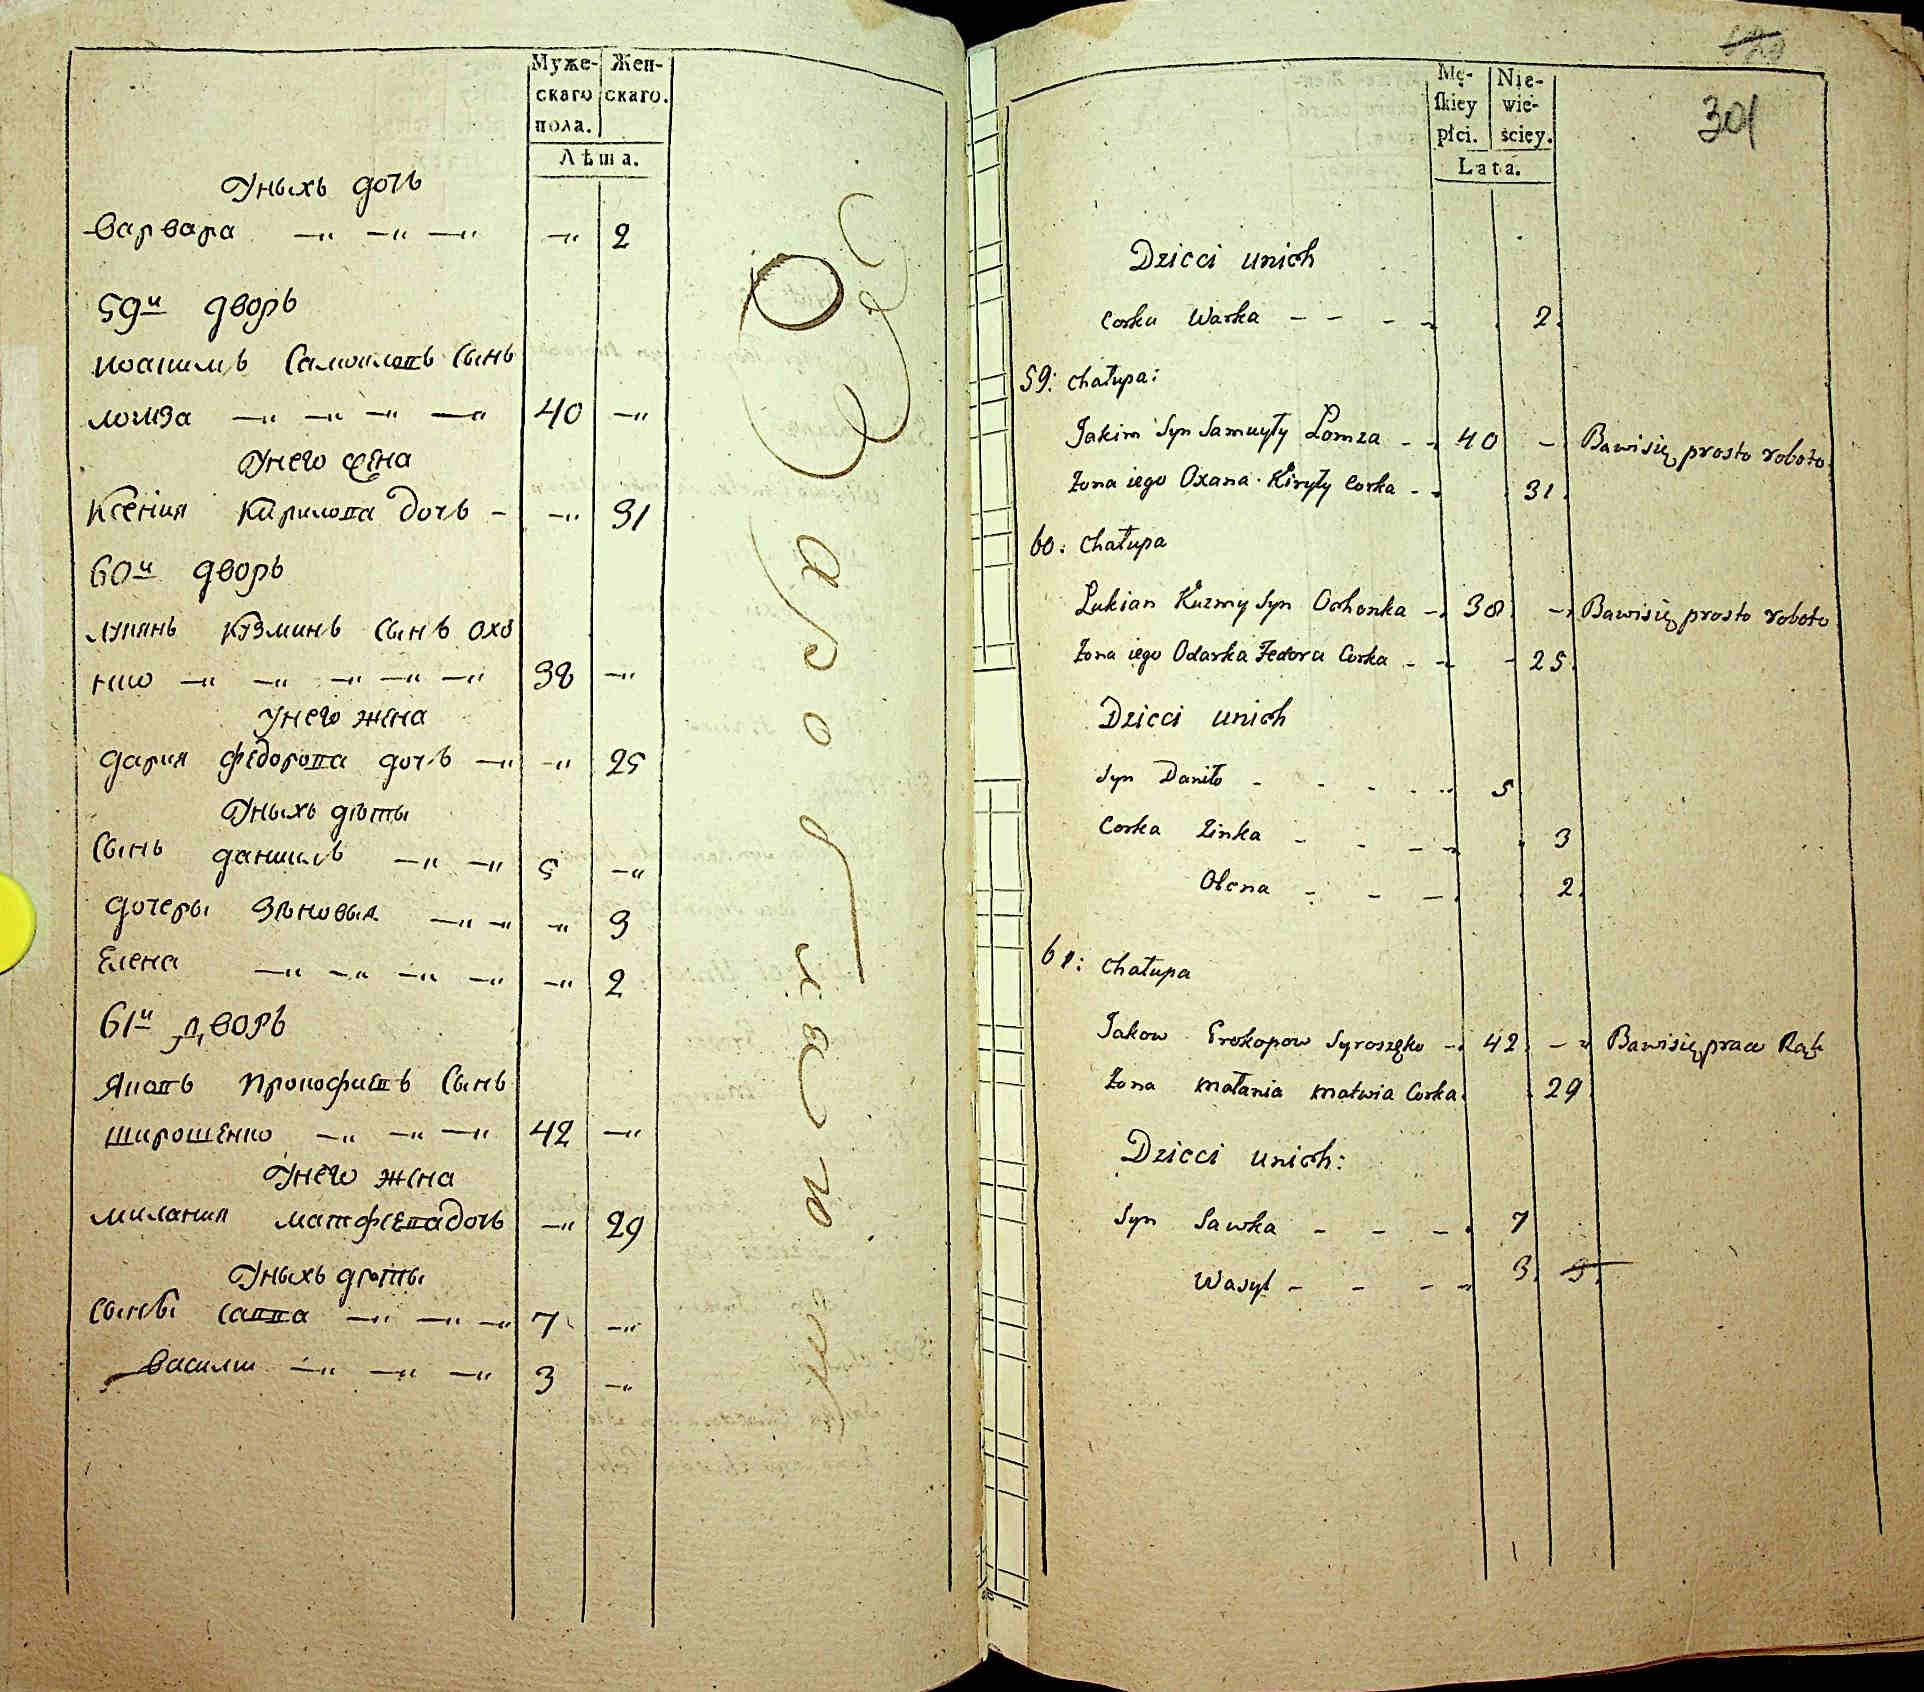 Муже-
скаго
пола.
Жен-
скаго.
Лѣта.
Уныхъ дочь
варвара — — — — 2
59й дворъ
иоакимъ Самоиловъ Сынъ
ломза — — — — 40 —
Унего жена
Ксения Кирилова дочь - — 31
60й дворъ
лукянъ кузминъ сынъ охо
нко — — — — — 38 —
Унего жена
дария федорова дочь — — 25
Уныхъ дѣты
Сынъ даниилъ — — 5 —
дочеры Зѣновыя — — — 3
Елена — — — — — 2
61й дворъ
Яковъ Прокофиевъ Сынъ
широшенко — — — 42 —
Унего жена
милания матфеева дочь — 29
Уныхъ дѣты
Сыны савва — — — 7 —
василии — — — 3 —
Mę-
skiey
płci.
Nie-
wie-
ściey.
Lata.
301
Dzieci unich
Corka Warka - - - - 2.
59: chałupa:
Jakim Syn Samuyły Łomza - - 40 - Bawisię prosto roboto
Żona iego Oxana Kiryły Corka - - 31.
60: Chałupa
Łukian Kuzmy Syn Ochonka - 38. - Bawisię prosto roboto
Żona iego Odarka Fedora Corka - - - 25.
Dzieci unich
Syn Daniło - - - - - 5
Corka Zinka - - - - 3
Olena - - - 2.
61: Chałupa
Jakow Prokopow Syroszęko - 42. - Bawisię prace Rąk
Żona Małania Matwia Corka. 29.
Dzieci unich:
Syn Sawka - - - 7
Wasyl - - - - 3. 3.